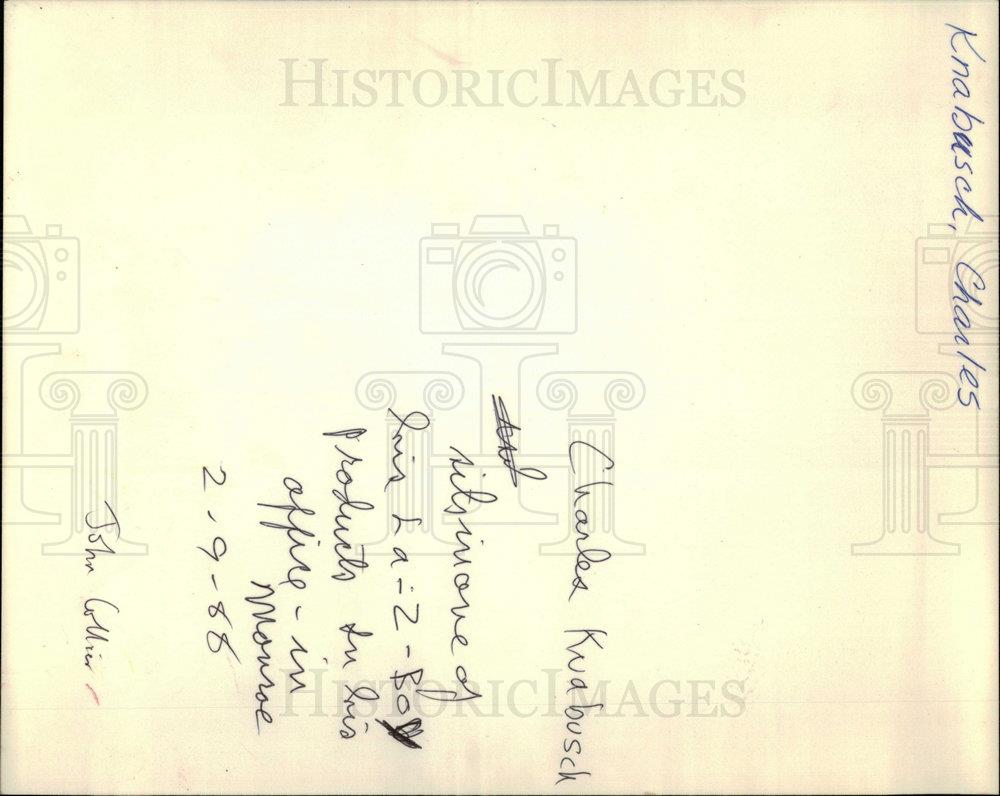 Knabusch, Charles
Charles Knabusch
sits in one of
his La-Z-Boy
products in his
office - in
Monroe
2-9-88
John Collier
HISTORICIMAGES
HISTORICIMAGES